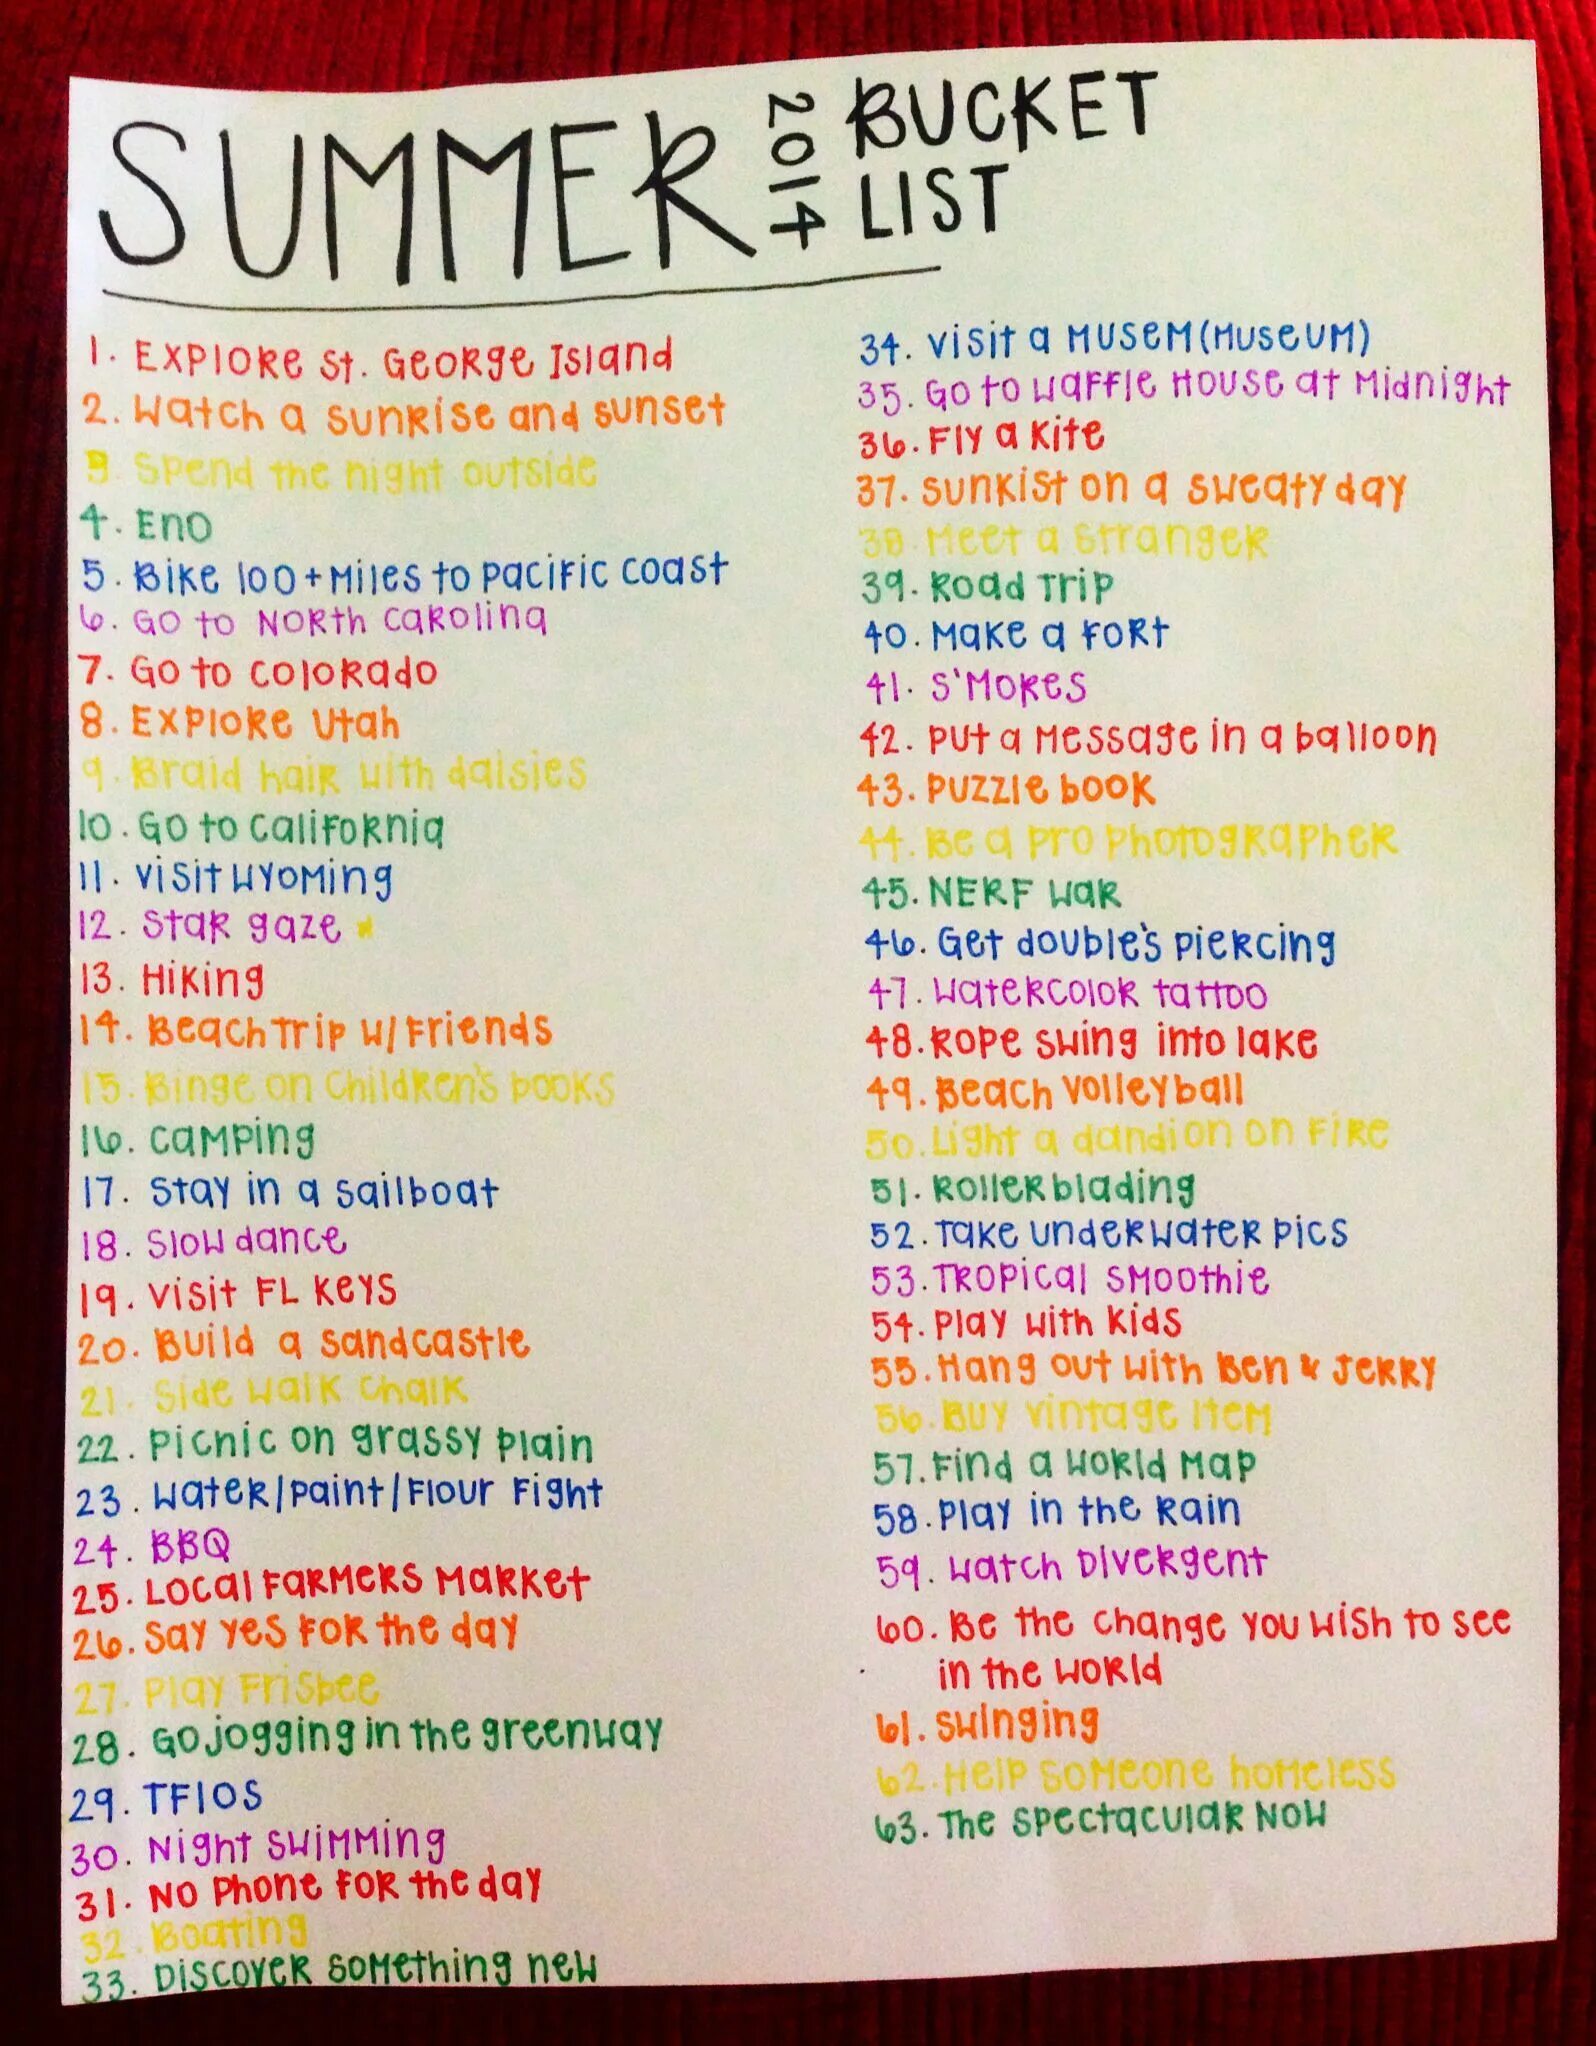 SUMMER 2014 BUCKET LIST
1. EXPLORE St. GEORGE ISland
2. Watch a sunrise and sunset
3. Spend the night outside
4. ENO
5. Bike 100+ Miles to pacific coast
6. Go to North Carolina
7. Go to Colorado
8. Explore Utah
9. Braid hair with daisies
10. Go to California
11. Visit Wyoming
12. Star gaze
13. Hiking
14. Beach Trip w/ Friends
15. Binge on Children's books
16. Camping
17. Stay in a sailboat
18. Slow dance
19. Visit FL KEYS
20. Build a sandcastle
21. Side walk chalk
22. Picnic on grassy plain
23. Water/paint/flour fight
24. BBQ
25. Local Farmers Market
26. Say yes for the day
27. Play Frisbee
28. Go jogging in the greenway
29. TFIOS
30. Night swimming
31. No phone for the day
32. Boating
33. Discover something new
34. Visit a MUSEM (MUSEUM)
35. Go to Waffle House at Midnight
36. Fly a kite
37. Sunkist on a sweaty day
38. Meet a stranger
39. Road Trip
40. Make a fort
41. S'MORES
42. Put a message in a balloon
43. Puzzle book
44. Be a pro photographer
45. NERF war
46. Get double's piercing
47. Watercolor tattoo
48. Rope swing into lake
49. Beach Volleyball
50. Light a dandion on fire
51. Rollerblading
52. Take underwater pics
53. Tropical smoothie
54. Play with kids
55. Hang out with Ben & Jerry
56. Buy vintage item
57. Find a world map
58. Play in the rain
59. Watch Divergent
60. Be the change you wish to see
in the world
61. Swinging
62. Help someone homeless
63. The Spectacular Now